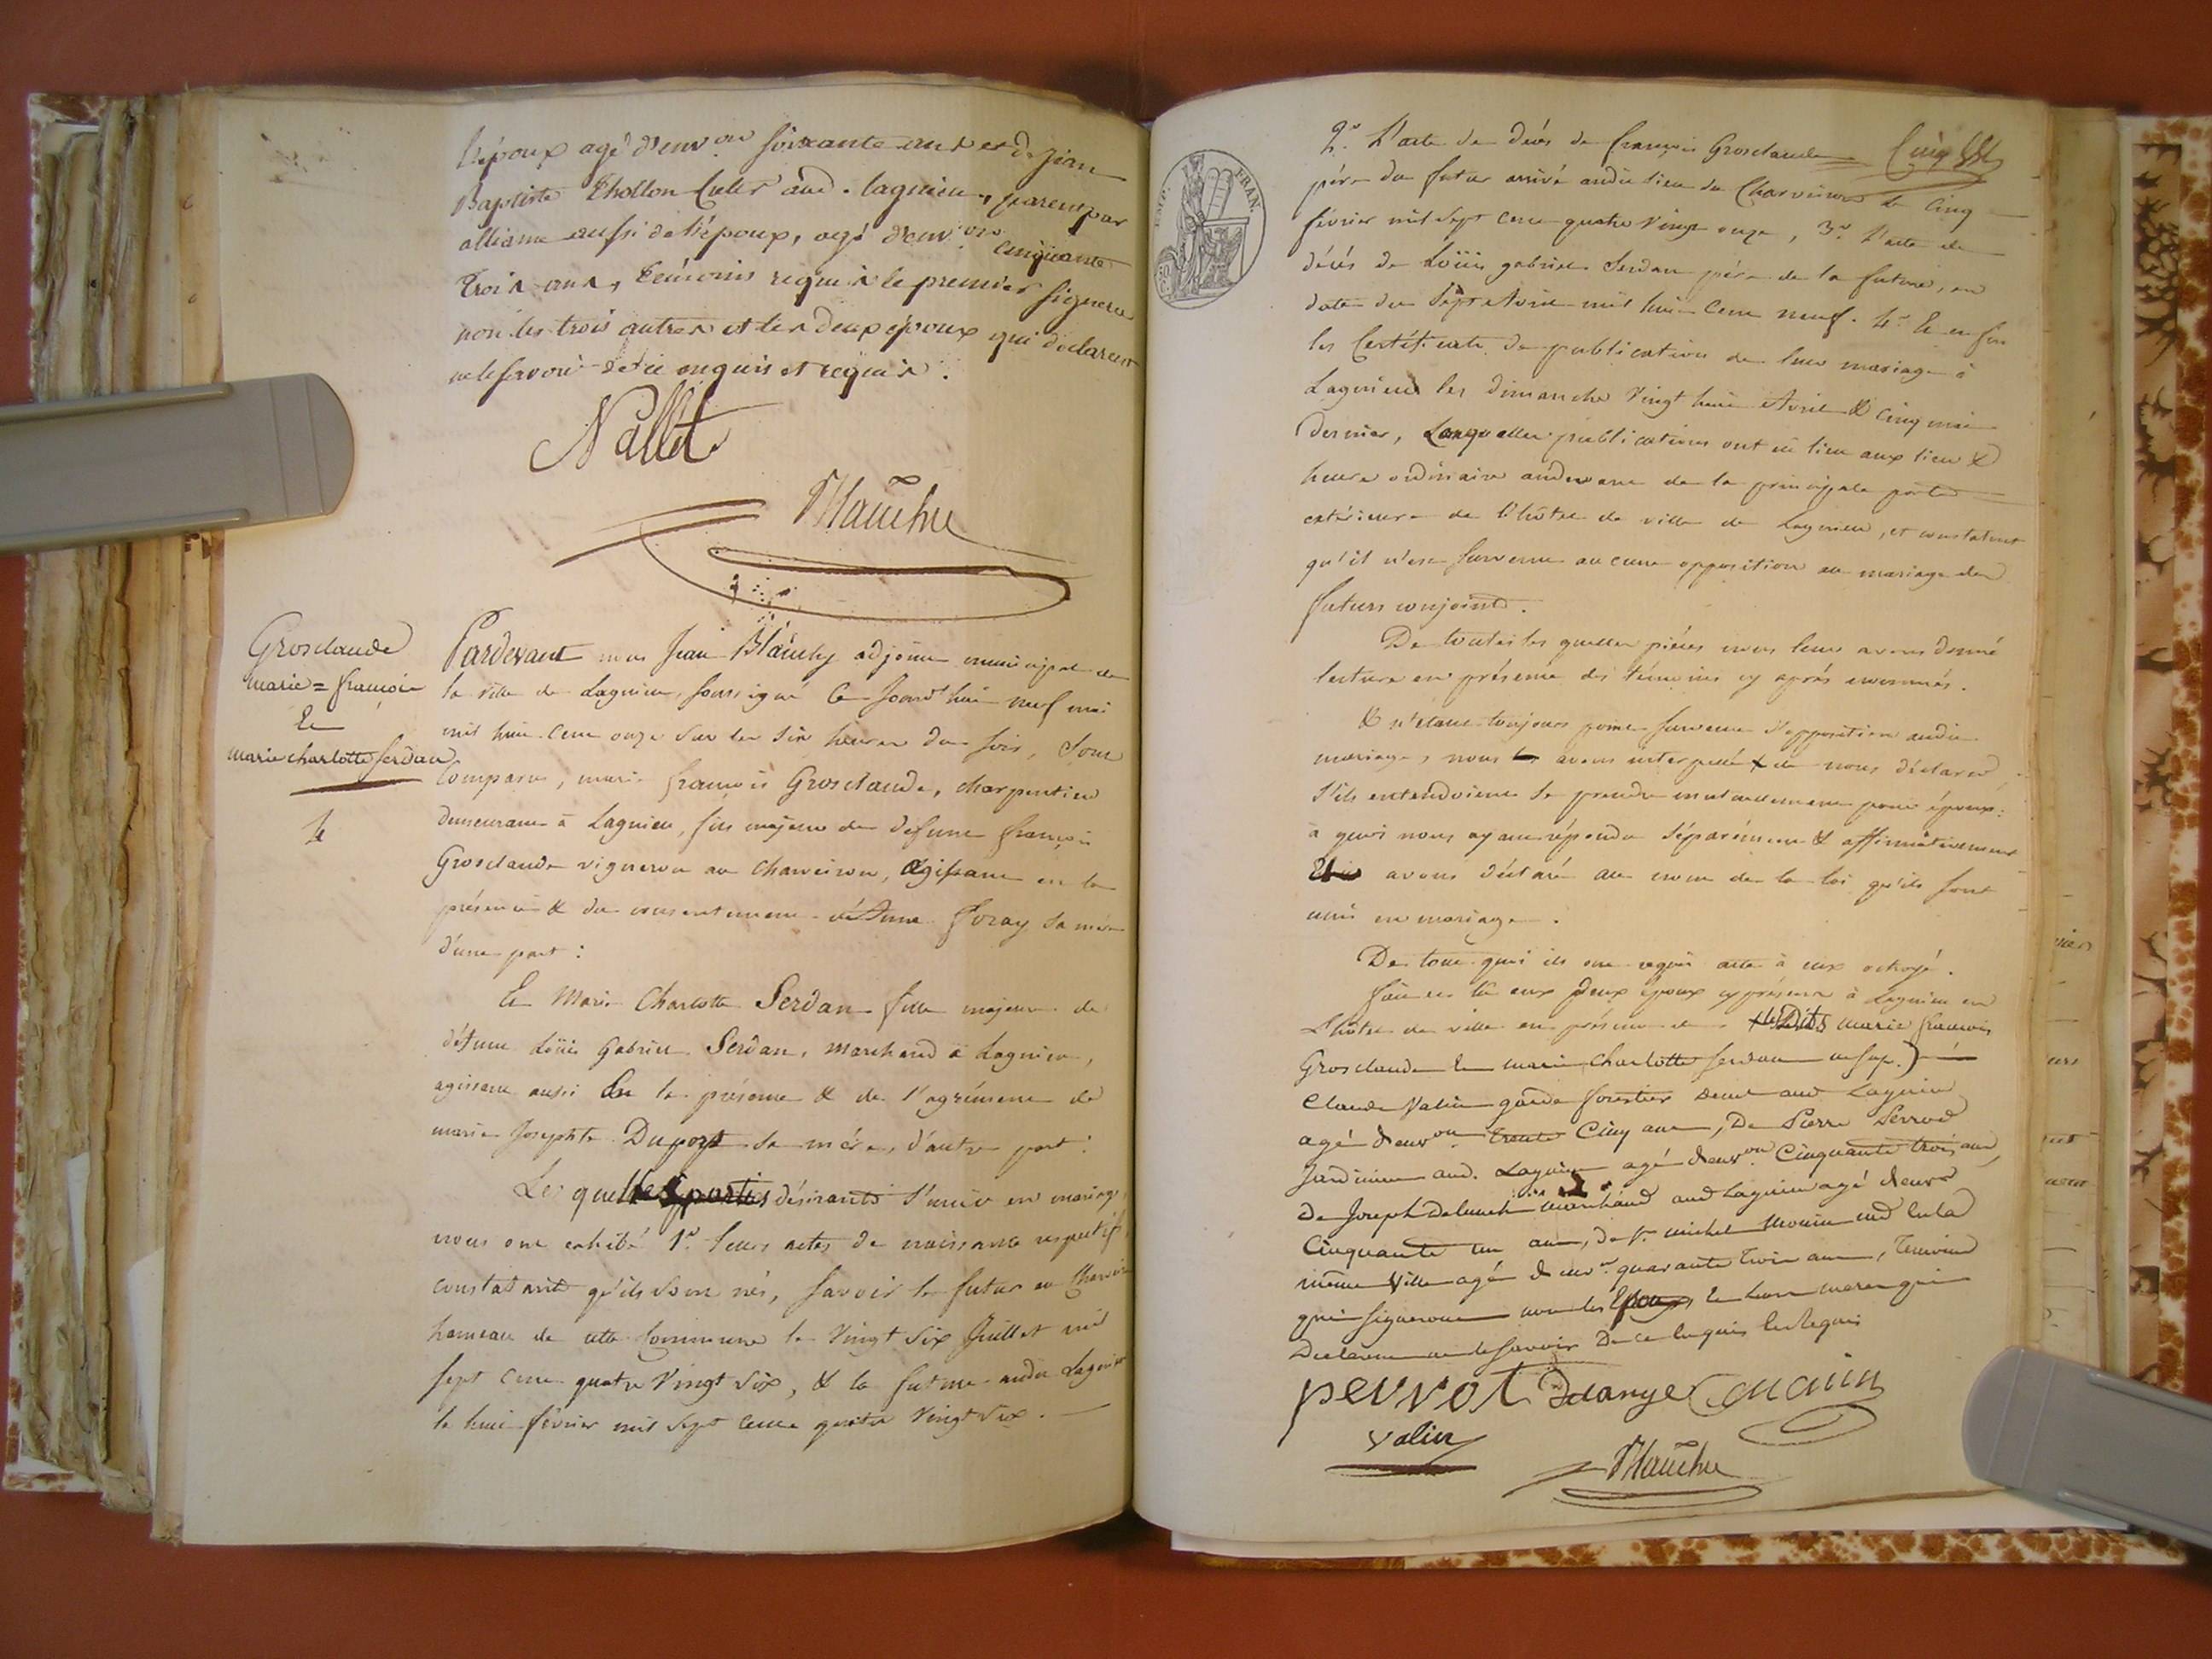 L'époux agé d'env.on soixante ans et de Jean
Baptiste Thollon Cult.r aud. lagnieu, parent par
alliance aussi de l'époux, agé d'env.on cinquante
trois ans, témoins requis le premier signera
non les trois autres et les deux époux qui déclarent
ne le savoir de ce enquis et requis.
Nallet
Blanchy
Grosclaude
marie = françois
Et
marie charlotte Serdan
Pardevant nous Jean Blanchy adjoint municipal de
la ville de Lagnieu, soussigné Ce Jourd'hui neuf mai
mil huit cent onze sur les six heures du soir, sont
Comparu, marie françois Grosclaude, charpentier
demeurant à Lagnieu, fils majeur de défunt françois
Grosclaude vigneron au Charveiron, agissant en la
présence & du consentement d'Anne Foray sa mère
d'une part :
Et Marie Charlotte Serdan fille majeure de
défunt Loüis Gabriel Serdan, marchand à Lagnieu,
agissant aussi En la présence & de l'agrément de
marie Josephte Duport sa mère, d'autre part :
Les quelles parties désirants s'unir en mariage,
nous ont exhibé 1.o leurs actes de naissance respectifs,
constatant qu'ils sont nés, savoir le futur au
hameau de cette Commune le vingt six Juillet mil
sept cent quatre vingt six, & la future audit Lagnieu
le huit février mil sept cent quatre vingt six.
2.o L'acte de décès de françois Grosclaude
père du futur arrivé audit lieu de Charveiron le cinq
février mil sept cent quatre vingt onze, 3.o l'acte de
décès de Loüis gabriel Serdan père de la future, en
date du Sept Avril mil huit cent neuf. 4.o Et enfin
les Certificats de publication de leur mariage à
Lagnieu les dimanche vingt huit Avril & cinq mai
dernier, Lesquelles publications ont eü lieu aux lieu &
heure ordinaire audevant de la principale porte
extérieure de l'hôtel de ville de Lagnieu, et constatent
qu'il n'est survenu aucune opposition au mariage des
futurs conjoints.
De toutes les quelles pièces nous leur avons donné
lecture en présence des témoins cy après nommés.
& n'étant toujours point survenu d'opposition audit
mariage, nous avons interpellé de nous déclarer
s'ils entendoient se prendre mutuellement pour époux :
à quoi nous ayant répondu séparément & affirmativement
avons déclaré au nom de la loi qu'ils sont
unis en mariage.
De tout quoi ils ont requis acte à eux octroyé.
fait et lû aux deux époux cy présent à Lagnieu en
L'hôtel de ville en présence de marie françois
Grosclaude Et marie charlotte Serdan
Claude Valin garde forestier aud Lagnieu
agé d'env.on trente Cinq ans, De Pierre Perrod
Jardinier aud. Lagnieu agé d'env.on Cinquante trois ans,
de Joseph marchand aud Lagnieu agé d'env.on
Cinquante un ans, de S.r michel
même Ville agé d'env.on quarante trois ans, témoins
qui signeront non les Epoux Et leurs meres qui
Declarent ne le savoir De ce Enquis Et Requis
perrot Delange
valin
Blanchy
EMP. FRAN.